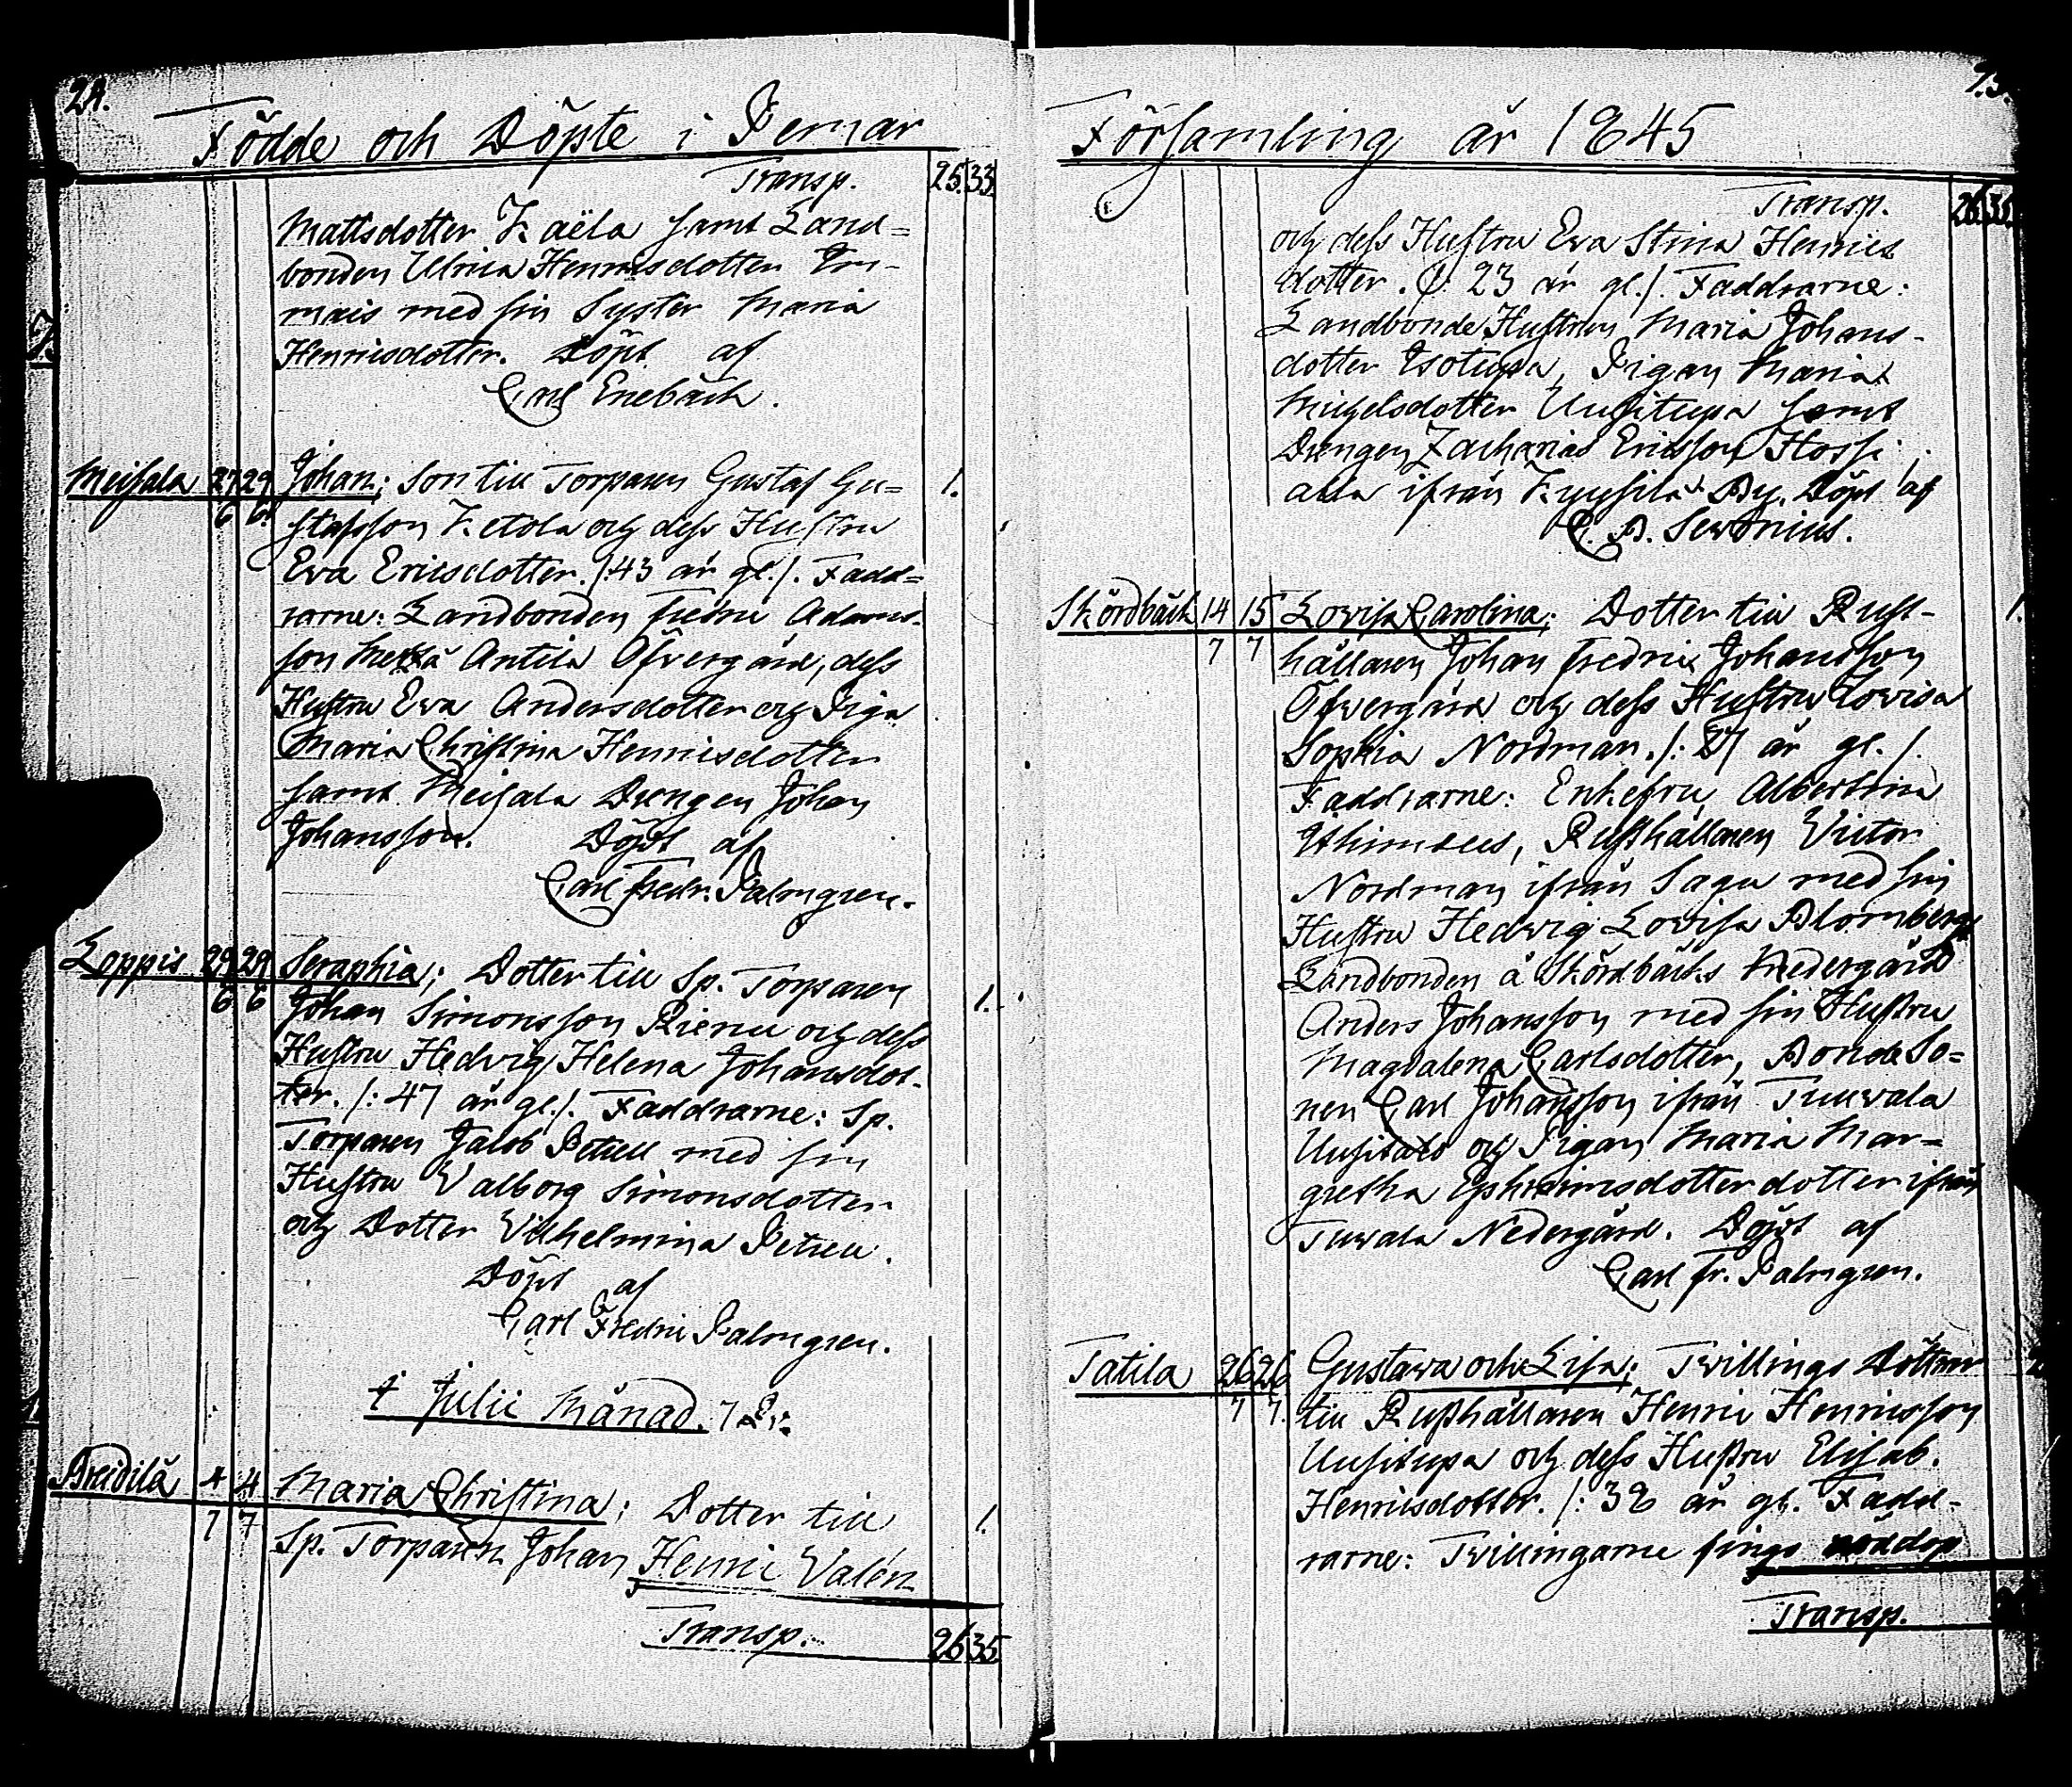 24.
Födde och Döpte i Pemar
Transp. 25. 33.
Mattsdotter Kaëla samt Land=
bonden Ulrica Henricsdotter
mais med sin Syster Maria
Henricsdotter. Döpt af
Carl Enebäck.
Meisala 27 29 Johan; Son till Torparen Gustaf Gu= 1.
6 6 stafsson Ketola och dess Hustru
Eva Ericsdotter. /: 43 år gl. /. Fadd=
rarne: Landbonden Fredric Adams-
son Antila Öfvergård, dess
Hustru Eva Andersdotter och Piga
Maria Christina Henricsdotter
samt Meisala Drengen Johan
Johansson. Döpt af
Carl Fredr. Palmgren.
Loppis 29 29 Seraphia; Dotter till Sp. Torparen
6 6 Johan Simonsson och dess 1.
Hustru Hedvig Helena Johansdot-
ter. /: 47 år gl. /. Faddrarne: Sp.
Torparen Jacob Petrell med sin
Hustru Valborg Simonsdotter
och Dotter Vilhelmina Petrell.
Döpt af
Carl Fredric Palmgren.
Julii Månad.
4 4 Maria Christina; Dotter till 1.
7 7 Sp. Torparen Johan Henric Valén
Transp. 26 35
Församling år 1845
Transp. 26 35
och dess Hustru Eva Stina Henrics
dotter. /: 23 år gl. /. Faddrarne:
Landbonde Hustrun Maria Johans-
dotter Isotupa, Pigan Maria
Michelsdotter Uusitupa samt
Drengen Zacharias Ericsson Hossi
alla ifrån Kyysilä By. Döpt af
Skördbäck 14 15 Lovisa Carolina; Dotter till Rust- 1.
7 7 hållaren Johan Fredric Johansson
Öfvergård och dess Hustru Lovisa
Sophia Nordman. /: år gl. /.
Faddrarne: Enkefru Albertina
Rusthållaren Victor
Nordman ifrån Sagu med sin
Hustru Hedvig Lovisa Blomberg
Landbonden å Skördbäcks Nedergård
Anders Johansson med sin Hustru
Magdalena Carlsdotter, Bonde So=
nen Carl Johansson ifrån Tuuvala
Uusitalo och Pigan Maria Mar=
gretha Ephraimsdotter dotter ifrån
Tuvala Nedergård. Döpt af
Carl Fr. Palmgren.
Tatila 26 26 Gustava och Lisa; Tvillings Döttrar 2
7 7. till Rusthållaren Henric Henricsson
Uusitupa och dess Hustru Elisab.
Henricsdotter. /: 38 år gl. Fadd-
rarne: Tvillingarne fingo nöddop
Transp.